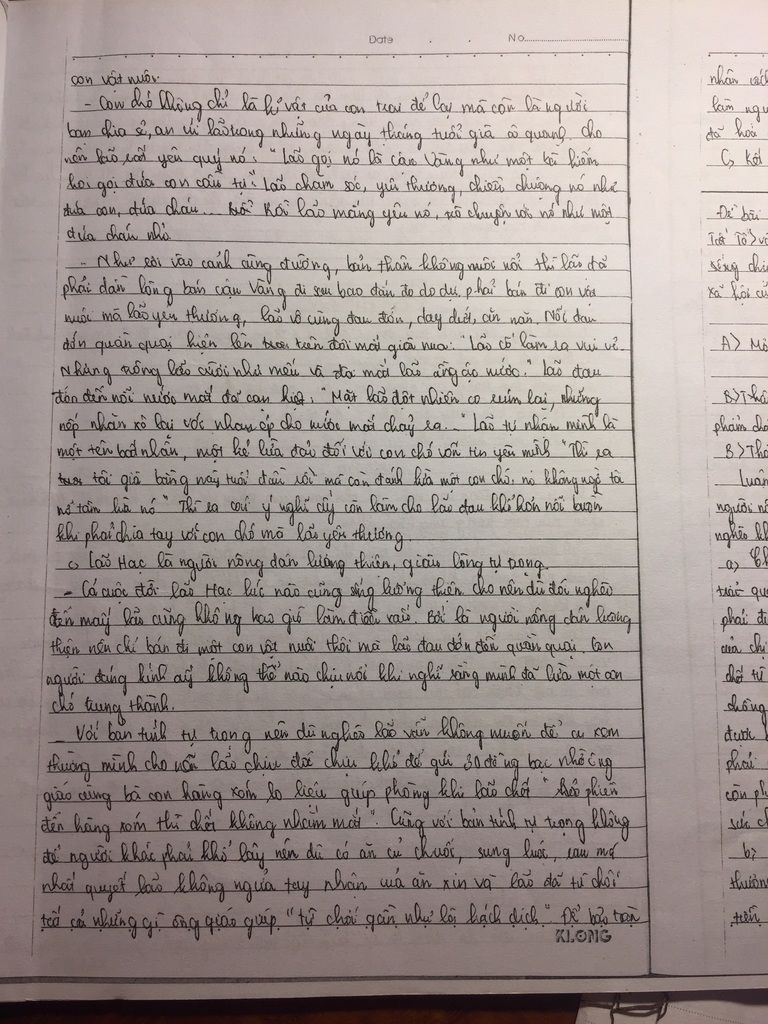 Date . . No
con vật nuôi.
- Con chó không chỉ là kỉ vật của con trai để lại mà còn là người
bạn chia sẻ, an ủi lão trong những ngày tháng tuổi già cô quạnh. Cho
nên lão rất yêu quý nó: "Lão gọi nó là cậu Vàng như một kẻ hiếm
hoi gọi đứa con cầu tự" Lão chăm sóc, yêu thương, chiều chuộng nó như
đứa con, đứa cháu... Rồi lão mắng yêu nó, trò chuyện với nó như một
đứa cháu nhỏ.
- Như rơi vào cảnh cùng đường, bản thân không nuôi nổi thì lão đã
phải dằn lòng bán cậu Vàng đi sau bao đắn đo do dự. phải bán đi con vật
nuôi mà lão yêu thương, lão vô cùng đau đớn, day dứt, ăn năn. Nỗi đau
đớn quằn quại hiện lên trên đôi mắt già nua: "Lão cố làm ra vui vẻ
Nhưng trông lão cười như mếu và đôi mắt lão ầng ậc nước." Lão đau
đớn đến nỗi nước mắt đã cạn kiệt: "Mặt lão đột nhiên co rúm lại, những
nếp nhăn xô lại với nhau ép cho nước mắt chảy ra..." Lão tự nhận mình là
một tên bất nhân, một kẻ lừa đảo đối với con chó vốn tin yêu mình "Thì ra
tôi già bằng này tuổi đầu rồi mà còn đánh lừa một con chó, nó không ngờ tôi
nỡ tâm lừa nó" Thì ra cái ý nghĩ ấy còn làm cho lão đau khổ hơn nỗi buồn
khi phải chia tay với con chó mà lão yêu thương.
c Lão Hạc là người nông dân lương thiện, giàu lòng tự trọng.
- Cả cuộc đời lão Hạc lúc nào cũng sống lương thiện cho nên dù đói nghèo
đến mấy lão cũng không bao giờ làm điều xấu. Bởi là người nông dân lương
thiện nên chỉ bán đi một con vật nuôi thôi mà lão đau đớn đến quằn quại. Con
người đáng kính ấy không thể nào chịu nổi khi nghĩ rằng mình đã lừa một con
chó trung thành.
- Với bản tính tự trọng nên dù nghèo lão vẫn không muốn để ai xem
thường mình cho nên lão chịu đói chịu khổ để gửi 30 đồng bạc nhờ ông
giáo cùng bà con hàng xóm lo liệu giúp phòng khi lão chết "phiền
đến hàng xóm thì chết không nhắm mắt". Cũng với bản tính tự trọng không
để người khác phải khổ lây nên dù có ăn củ chuối, sung luộc, rau má
nhất quyết lão không ngửa tay nhận của ăn xin và lão đã từ chối
tất cả những gì ông giáo giúp "từ chối gần như là hách dịch." Để bảo toàn
KLONG
nhân cách
làm ngư
đã hoá
C, Kết
Đề bài
Tắt Tố > v
sống
xã hội củ
A > Mở
B > Thâ
phẩm ch
B > Thâ
Luận
người nô
nghèo kh
a, Ch
phải đi
của chị
chồng
được
phải
còn ph
b,
thương
tiền